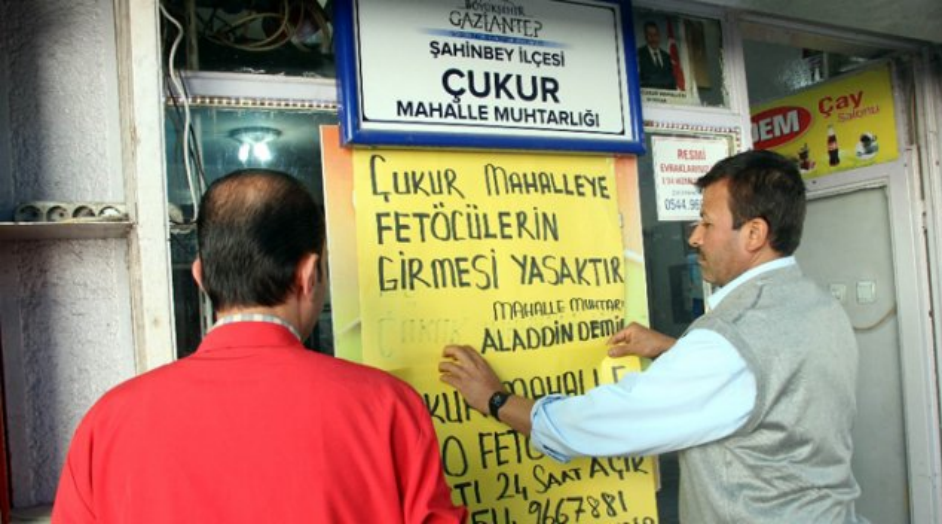 BÜYÜKŞEHİR
GAZİANTEP
ŞAHİNBEY İLÇESİ
ÇUKUR
MAHALLE MUHTARLIĞI
ÇUKUR MAHALLEYE
FETÖCÜLERİN
GİRMESİ YASAKTIR
MAHALLE MUHTAR
ALADDİN DEMİ
MAHALLE
FETÖ
24 SAAT AÇIK
9667881
RESMİ
0544.96
DEM Çay
Salonu